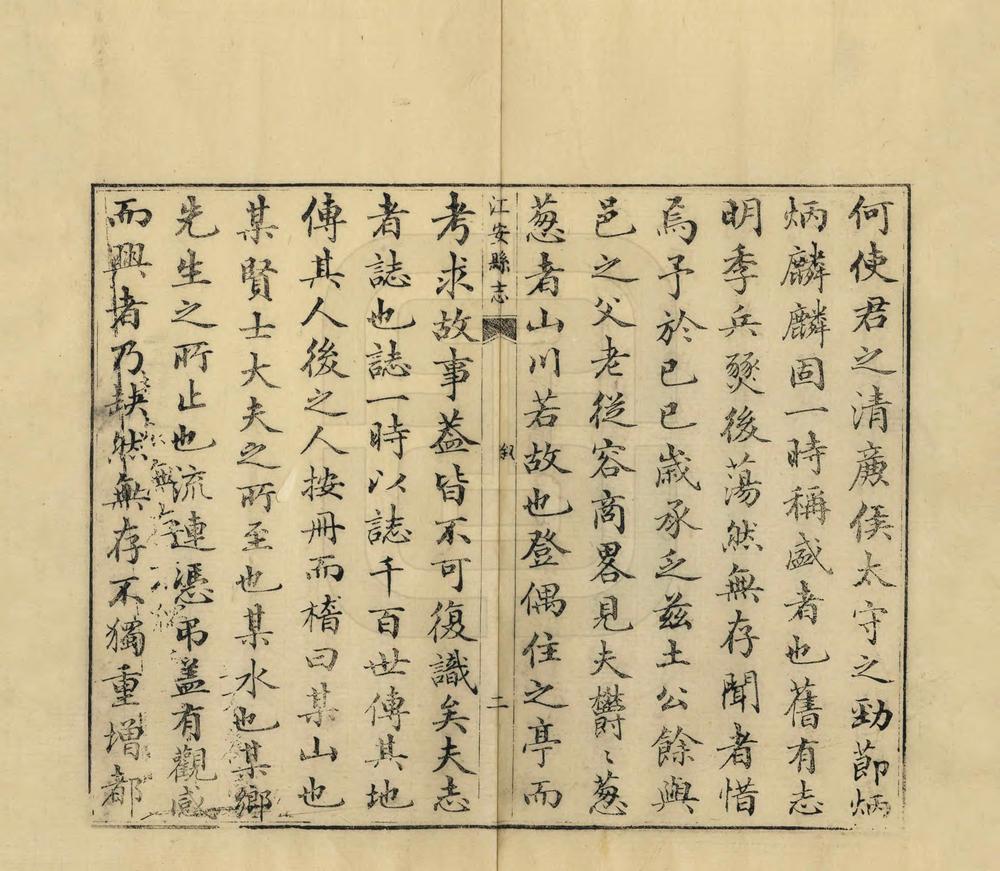 何使君之清廉侯太守之勁節炳
炳麟麟固一時稱盛者也舊有志
明季兵燹後蕩然無存聞者惜
焉予於己巳歲承乏茲土公餘與
邑之父老從容商畧見夫欝〻葱
葱者山川若故也登偶住之亭而
江安縣志
叙
二
考求故事葢皆不可復識矣夫志
者誌也誌一時以誌千百世傳其地
傳其人後之人按冊而稽曰某山也
某賢士大夫之所至也某水也某鄉
先生之所止也流連憑弔盖有觀感
而興者乃缺然無存不獨重增都